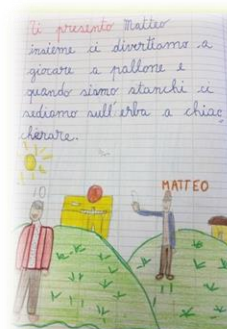 Ti presento Matteo
insieme ci divertiamo a
giocare a pallone e
quando siamo stanchi ci
sediamo sull'erba a chiac
chierare.
IO
MATTEO